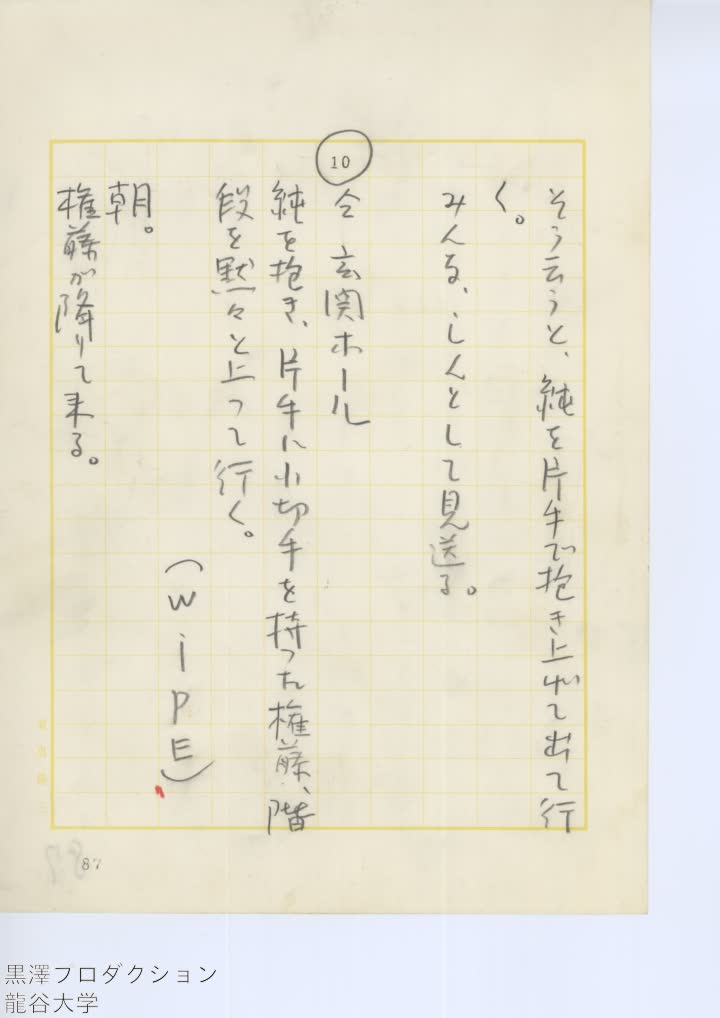 そう云うと、純を片手で抱き上げて出て行
く。
みんな、しんとして見送る。
10
仝 玄関ホール
純を抱き、片手に小切手を持った権藤、階
段を黙々と上って行く。
(WiPE)
朝。
権藤が降りて来る。
87
黒澤プロダクション
龍谷大学